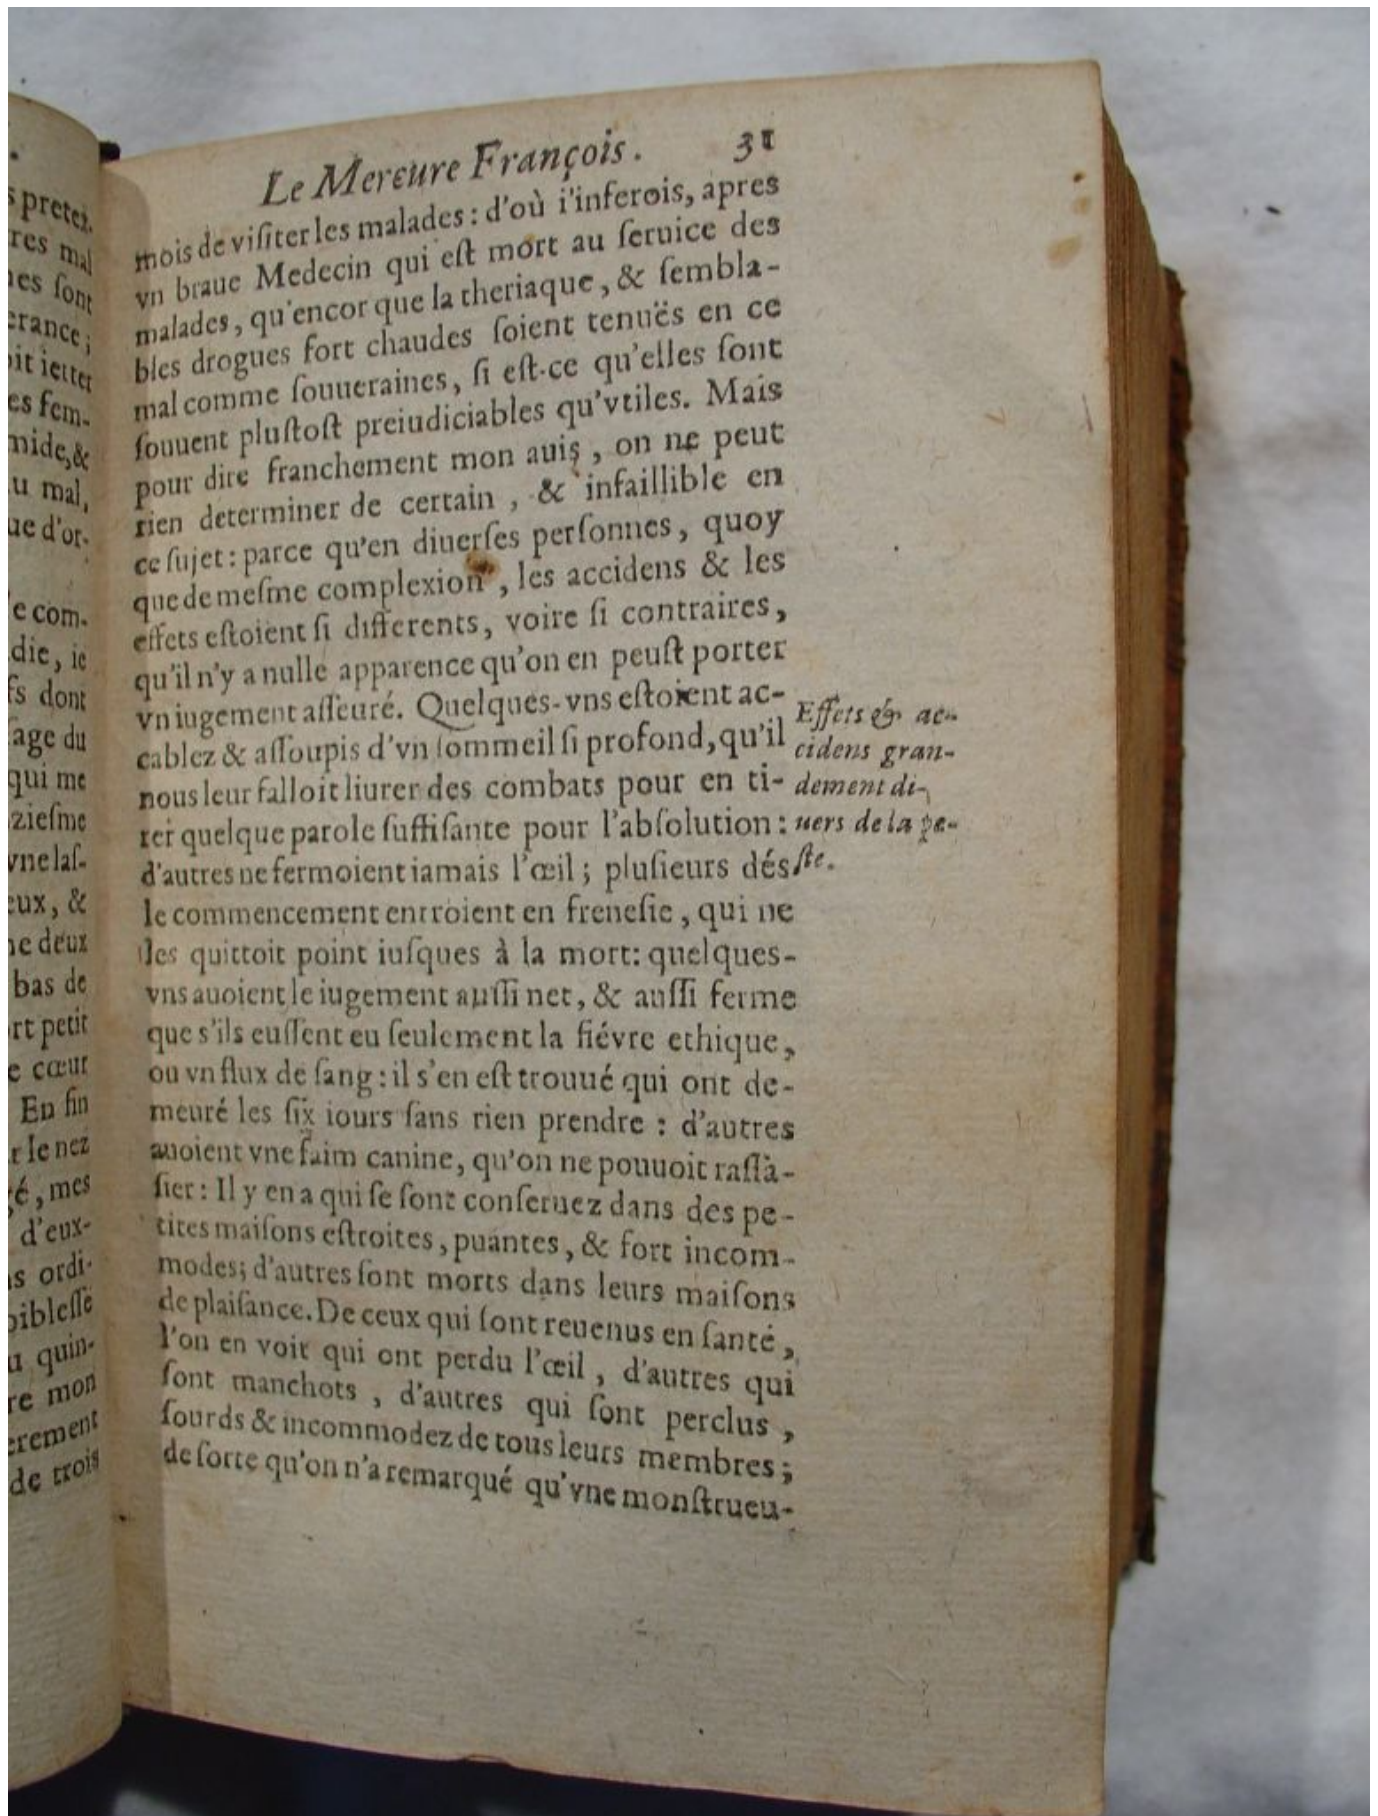 s pretex.
res mal
nes ſont
erance;
oit ietter
es fem-
mide, &
u mal,
ue d'or-
e com-
die, ie
fs dont
age du
qui me
zieſme
vne laſ-
eux, &
ne deux
bas de
ort petit
e cœur
En fin
r le nez
gé, mes
d'eux-
s ordi-
oibleſſe
u quin-
re mon
erement
de trois
Le Mercure François. 31
mois de viſiter les malades: d'où i'inferois, apres
vn braue Medecin qui eſt mort au ſeruice des
malades, qu'encor que la theriaque, & ſembla-
bles drogues fort chaudes ſoient tenuës en ce
mal comme ſouueraines, ſi eſt-ce qu'elles ſont
ſouuent pluſtoſt preiudiciables qu'vtiles. Mais
pour dire franchement mon auis, on ne peut
rien determiner de certain, & infaillible en
ce ſujet: parce qu'en diuerſes perſonnes, quoy
que de meſme complexion, les accidens & les
effets eſtoient ſi differents, voire ſi contraires,
qu'il n'y a nulle apparence qu'on en peuſt porter
vn iugement aſſeuré. Quelques-vns eſtoient ac-
cablez & aſſoupis d'vn ſommeil ſi profond, qu'il
nous leur falloit liurer des combats pour en ti-
rer quelque parole ſuffiſante pour l'abſolution:
d'autres ne fermoient iamais l'œil; pluſieurs dés
le commencement entroient en freneſie, qui ne
les quittoit point iuſques à la mort: quelques-
vns auoient le iugement auſſi net, & auſſi ferme
que s'ils euſſent eu ſeulement la fiévre ethique,
ou vn flux de ſang: il s'en eſt trouué qui ont de-
meuré les ſix iours ſans rien prendre: d'autres
auoient vne faim canine, qu'on ne pouuoit raſſa-
ſier: Il y en a qui ſe ſont conſeruez dans des pe-
tites maiſons eſtroites, puantes, & fort incom-
modes; d'autres ſont morts dans leurs maiſons
de plaiſance. De ceux qui ſont reuenus en ſanté,
l'on en voit qui ont perdu l'œil, d'autres qui
ſont manchots, d'autres qui ſont perclus,
ſourds & incommodez de tous leurs membres;
de ſorte qu'on n'a remarqué qu'vne monſtrueu-
Effets & ac-
cidens gran-
dement di-
uers de la pe-
ſte.